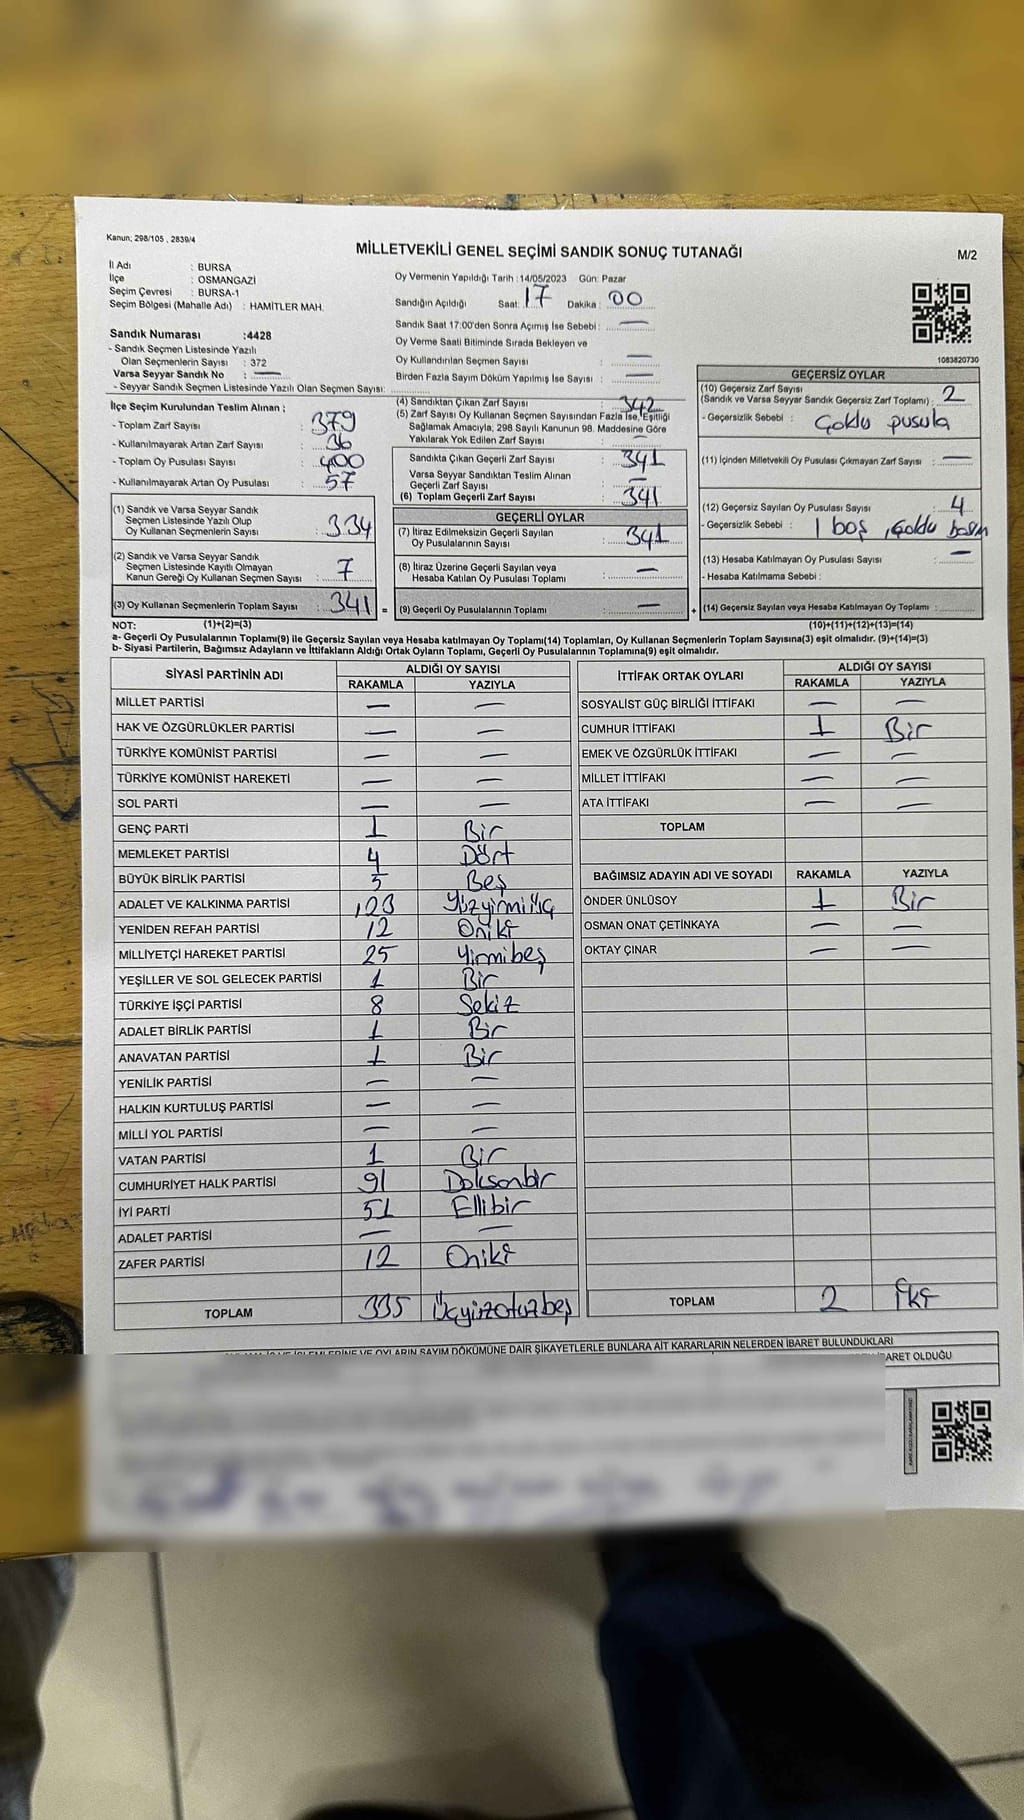 Kanun; 298/105 , 2839/4
MİLLETVEKİLİ GENEL SEÇİMİ SANDIK SONUÇ TUTANAĞI
M/2
İl Adı : BURSA
İlçe : OSMANGAZİ
Seçim Çevresi : BURSA-1
Seçim Bölgesi (Mahalle Adı) : HAMİTLER MAH.
Oy Vermenin Yapıldığı Tarih :14/05/2023 Gün: Pazar
Sandığın Açıldığı Saat: 17 Dakika : 00
Sandık Saat 17:00'den Sonra Açımış İse Sebebi : —
Oy Verme Saati Bitiminde Sırada Bekleyen ve
Oy Kullandırılan Seçmen Sayısı : —
Birden Fazla Sayım Döküm Yapılmış İse Sayısı : —
1083820730
Sandık Numarası :4428
- Sandık Seçmen Listesinde Yazılı
Olan Seçmenlerin Sayısı : 372
Varsa Seyyar Sandık No : —
- Seyyar Sandık Seçmen Listesinde Yazılı Olan Seçmen Sayısı:
İlçe Seçim Kurulundan Teslim Alınan ;
- Toplam Zarf Sayısı : 379
- Kullanılmayarak Artan Zarf Sayısı : 36
- Toplam Oy Pusulası Sayısı : 400
- Kullanılmayarak Artan Oy Pusulası : 57
(1) Sandık ve Varsa Seyyar Sandık
Seçmen Listesinde Yazılı Olup
Oy Kullanan Seçmenlerin Sayısı : 334
(2) Sandık ve Varsa Seyyar Sandık
Seçmen Listesinde Kayıtlı Olmayan
Kanun Gereği Oy Kullanan Seçmen Sayısı : 7
(3) Oy Kullanan Seçmenlerin Toplam Sayısı : 341 =
(4) Sandıktan Çıkan Zarf Sayısı : 342
(5) Zarf Sayısı Oy Kullanan Seçmen Sayısından Fazla İse, Eşitliği
Sağlamak Amacıyla, 298 Sayılı Kanunun 98. Maddesine Göre
Yakılarak Yok Edilen Zarf Sayısı : —
Sandıkta Çıkan Geçerli Zarf Sayısı : 341
Varsa Seyyar Sandıktan Teslim Alınan
Geçerli Zarf Sayısı : —
(6) Toplam Geçerli Zarf Sayısı : 341
GEÇERLİ OYLAR
(7) İtiraz Edilmeksizin Geçerli Sayılan
Oy Pusulalarının Sayısı : 341
(8) İtiraz Üzerine Geçerli Sayılan veya
Hesaba Katılan Oy Pusulası Toplamı : —
(9) Geçerli Oy Pusulalarının Toplamı : — +
GEÇERSİZ OYLAR
(10) Geçersiz Zarf Sayısı
(Sandık ve Varsa Seyyar Sandık Geçersiz Zarf Toplamı) : 2
- Geçersizlik Sebebi : Çoklu pusula
(11) İçinden Milletvekili Oy Pusulası Çıkmayan Zarf Sayısı : —
(12) Geçersiz Sayılan Oy Pusulası Sayısı : 4
- Geçersizlik Sebebi : 1 boş , Çoklu
(13) Hesaba Katılmayan Oy Pusulası Sayısı : —
- Hesaba Katılmama Sebebi :
(14) Geçersiz Sayılan veya Hesaba Katılmayan Oy Toplamı :
NOT: (1)+(2)=(3) (10)+(11)+(12)+(13)=(14)
a- Geçerli Oy Pusulalarının Toplamı(9) ile Geçersiz Sayılan veya Hesaba katılmayan Oy Toplamı(14) Toplamları, Oy Kullanan Seçmenlerin Toplam Sayısına(3) eşit olmalıdır. (9)+(14)=(3)
b- Siyasi Partilerin, Bağımsız Adayların ve İttifakların Aldığı Ortak Oyların Toplamı, Geçerli Oy Pusulalarının Toplamına(9) eşit olmalıdır.
SİYASİ PARTİNİN ADI ALDIĞI OY SAYISI
RAKAMLA YAZIYLA
MİLLET PARTİSİ — —
HAK VE ÖZGÜRLÜKLER PARTİSİ — —
TÜRKİYE KOMÜNİST PARTİSİ — —
TÜRKİYE KOMÜNİST HAREKETİ — —
SOL PARTİ — —
GENÇ PARTİ 1 Bir
MEMLEKET PARTİSİ 4 Dört
BÜYÜK BİRLİK PARTİSİ 5 Beş
ADALET VE KALKINMA PARTİSİ 123 Yüzyirmiüç
YENİDEN REFAH PARTİSİ 12 Oniki
MİLLİYETÇİ HAREKET PARTİSİ 25 Yirmibeş
YEŞİLLER VE SOL GELECEK PARTİSİ 1 Bir
TÜRKİYE İŞÇİ PARTİSİ 8 Sekiz
ADALET BİRLİK PARTİSİ 1 Bir
ANAVATAN PARTİSİ 1 Bir
YENİLİK PARTİSİ — —
HALKIN KURTULUŞ PARTİSİ — —
MİLLİ YOL PARTİSİ — —
VATAN PARTİSİ 1 Bir
CUMHURİYET HALK PARTİSİ 91 Doksanbir
İYİ PARTİ 51 Ellibir
ADALET PARTİSİ — —
ZAFER PARTİSİ 12 Oniki
TOPLAM 335 Üçyüzotuzbeş
İTTİFAK ORTAK OYLARI ALDIĞI OY SAYISI
RAKAMLA YAZIYLA
SOSYALİST GÜÇ BİRLİĞİ İTTİFAKI — —
CUMHUR İTTİFAKI 1 Bir
EMEK VE ÖZGÜRLÜK İTTİFAKI — —
MİLLET İTTİFAKI — —
ATA İTTİFAKI — —
TOPLAM
BAĞIMSIZ ADAYIN ADI VE SOYADI RAKAMLA YAZIYLA
ÖNDER ÜNLÜSOY 1 Bir
OSMAN ONAT ÇETİNKAYA — —
OKTAY ÇINAR — —
TOPLAM 2 İki
VE OYLARIN SAYIM DÖKÜMÜNE DAİR ŞİKAYETLERLE BUNLARA AİT KARARLARIN NELERDEN İBARET BULUNDUKLARI
OLDUĞU